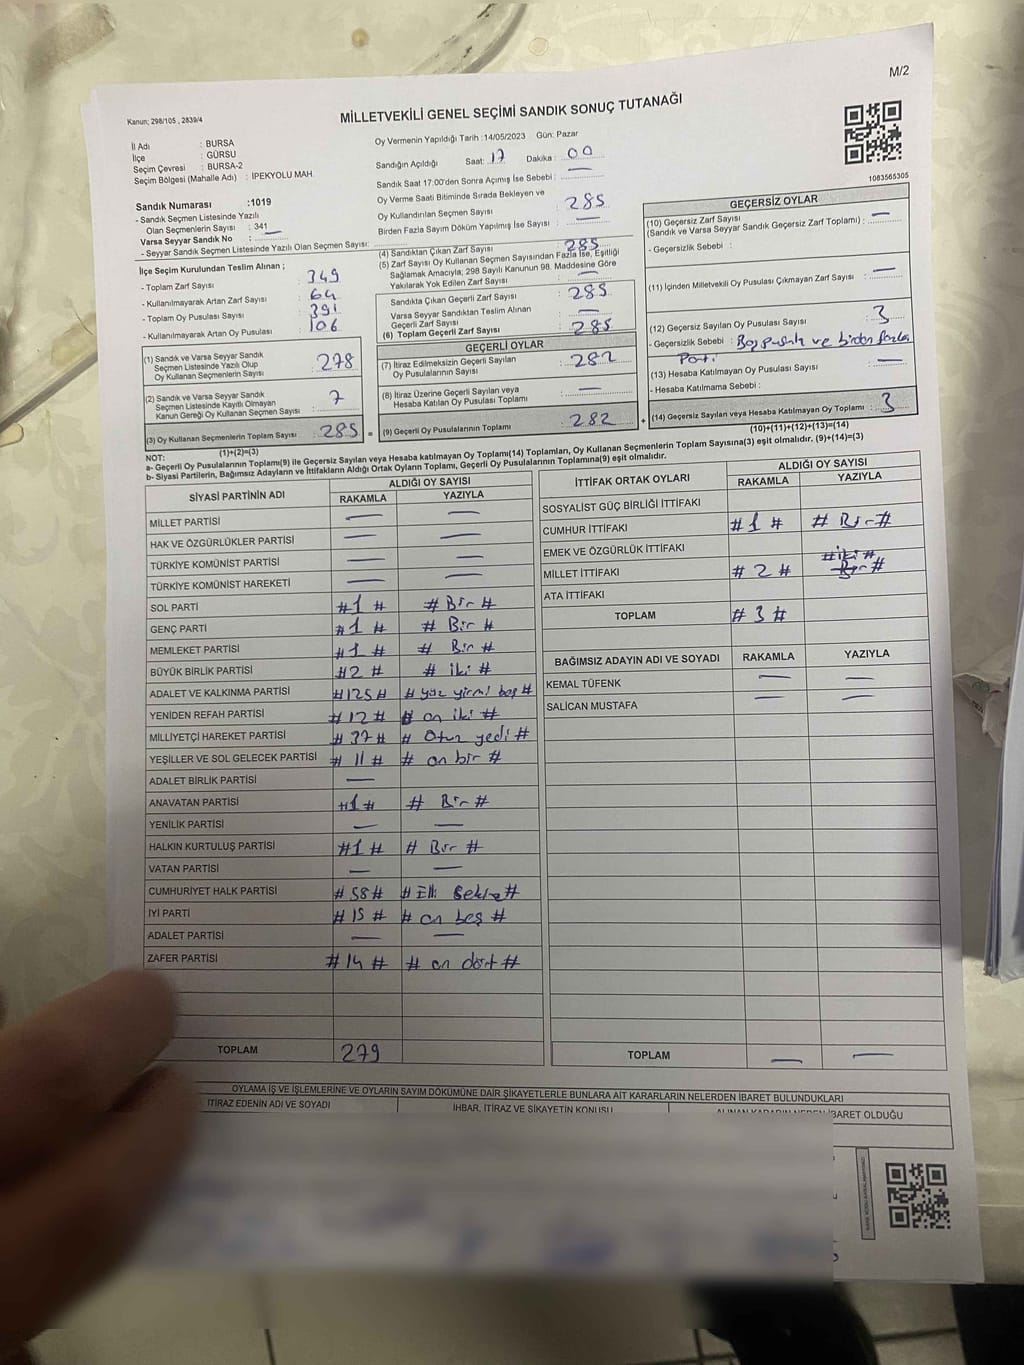 M/2
MİLLETVEKİLİ GENEL SEÇİMİ SANDIK SONUÇ TUTANAĞI
Kanun; 298/105 , 2839/4
İl Adı : BURSA
İlçe : GÜRSU
Seçim Çevresi : BURSA-2
Seçim Bölgesi (Mahalle Adı) : İPEKYOLU MAH.
Oy Vermenin Yapıldığı Tarih :14/05/2023 Gün: Pazar
Sandığın Açıldığı Saat: 17 Dakika : 00
Sandık Saat 17:00'den Sonra Açımış İse Sebebi : —
Oy Verme Saati Bitiminde Sırada Bekleyen ve
Oy Kullandırılan Seçmen Sayısı : 285
Birden Fazla Sayım Döküm Yapılmış İse Sayısı : —
1083565305
Sandık Numarası :1019
- Sandık Seçmen Listesinde Yazılı
Olan Seçmenlerin Sayısı : 341
Varsa Seyyar Sandık No : —
- Seyyar Sandık Seçmen Listesinde Yazılı Olan Seçmen Sayısı:
İlçe Seçim Kurulundan Teslim Alınan ;
- Toplam Zarf Sayısı : 349
- Kullanılmayarak Artan Zarf Sayısı : 64
- Toplam Oy Pusulası Sayısı : 391
- Kullanılmayarak Artan Oy Pusulası : 106
(1) Sandık ve Varsa Seyyar Sandık
Seçmen Listesinde Yazılı Olup
Oy Kullanan Seçmenlerin Sayısı : 278
(2) Sandık ve Varsa Seyyar Sandık
Seçmen Listesinde Kayıtlı Olmayan
Kanun Gereği Oy Kullanan Seçmen Sayısı : 7
(3) Oy Kullanan Seçmenlerin Toplam Sayısı : 285
(1)+(2)=(3)
(4) Sandıktan Çıkan Zarf Sayısı : 285
(5) Zarf Sayısı Oy Kullanan Seçmen Sayısından Fazla İse, Eşitliği
Sağlamak Amacıyla, 298 Sayılı Kanunun 98. Maddesine Göre
Yakılarak Yok Edilen Zarf Sayısı : —
Sandıkta Çıkan Geçerli Zarf Sayısı : 285
Varsa Seyyar Sandıktan Teslim Alınan
Geçerli Zarf Sayısı : —
(6) Toplam Geçerli Zarf Sayısı : 285
GEÇERLİ OYLAR
(7) İtiraz Edilmeksizin Geçerli Sayılan
Oy Pusulalarının Sayısı : 282
(8) İtiraz Üzerine Geçerli Sayılan veya
Hesaba Katılan Oy Pusulası Toplamı : —
(9) Geçerli Oy Pusulalarının Toplamı : 282
GEÇERSİZ OYLAR
(10) Geçersiz Zarf Sayısı : —
(Sandık ve Varsa Seyyar Sandık Geçersiz Zarf Toplamı)
- Geçersizlik Sebebi :
(11) İçinden Milletvekili Oy Pusulası Çıkmayan Zarf Sayısı : —
(12) Geçersiz Sayılan Oy Pusulası Sayısı : 3
- Geçersizlik Sebebi : Boş pusula ve birden fazla
Parti
(13) Hesaba Katılmayan Oy Pusulası Sayısı : —
- Hesaba Katılmama Sebebi :
(14) Geçersiz Sayılan veya Hesaba Katılmayan Oy Toplamı : 3
(10)+(11)+(12)+(13)=(14)
NOT:
a- Geçerli Oy Pusulalarının Toplamı(9) ile Geçersiz Sayılan veya Hesaba Katılmayan Oy Toplamı(14) Toplamları, Oy Kullanan Seçmenlerin Toplam Sayısına(3) eşit olmalıdır. (9)+(14)=(3)
b- Siyasi Partilerin, Bağımsız Adayların ve İttifakların Aldığı Ortak Oyların Toplamı, Geçerli Oy Pusulalarının Toplamına(9) eşit olmalıdır.
SİYASİ PARTİNİN ADI ALDIĞI OY SAYISI
RAKAMLA YAZIYLA
MİLLET PARTİSİ — —
HAK VE ÖZGÜRLÜKLER PARTİSİ — —
TÜRKİYE KOMÜNİST PARTİSİ — —
TÜRKİYE KOMÜNİST HAREKETİ — —
SOL PARTİ #1# #Bir#
GENÇ PARTİ #1# #Bir#
MEMLEKET PARTİSİ #1# #Bir#
BÜYÜK BİRLİK PARTİSİ #2# #iki#
ADALET VE KALKINMA PARTİSİ #125# #yüz yirmi beş#
YENİDEN REFAH PARTİSİ #12# #on iki#
MİLLİYETÇİ HAREKET PARTİSİ #37# #Otuz yedi#
YEŞİLLER VE SOL GELECEK PARTİSİ #11# #on bir#
ADALET BİRLİK PARTİSİ —
ANAVATAN PARTİSİ #1# #Bir#
YENİLİK PARTİSİ — —
HALKIN KURTULUŞ PARTİSİ #1# #Bir#
VATAN PARTİSİ — —
CUMHURİYET HALK PARTİSİ #58# #Elli Sekiz#
İYİ PARTİ #15# #on beş#
ADALET PARTİSİ — —
ZAFER PARTİSİ #14# #on dört#
TOPLAM 279
İTTİFAK ORTAK OYLARI ALDIĞI OY SAYISI
RAKAMLA YAZIYLA
SOSYALİST GÜÇ BİRLİĞİ İTTİFAKI
CUMHUR İTTİFAKI #1# #Bir#
EMEK VE ÖZGÜRLÜK İTTİFAKI
MİLLET İTTİFAKI #2# #iki# Bir#
ATA İTTİFAKI
TOPLAM #3#
BAĞIMSIZ ADAYIN ADI VE SOYADI RAKAMLA YAZIYLA
KEMAL TÜFENK — —
SALİCAN MUSTAFA — —
TOPLAM — —
OYLAMA İŞ VE İŞLEMLERİNE VE OYLARIN SAYIM DÖKÜMÜNE DAİR ŞİKAYETLERLE BUNLARA AİT KARARLARIN NELERDEN İBARET BULUNDUKLARI
İTİRAZ EDENİN ADI VE SOYADI İHBAR, İTİRAZ VE ŞİKAYETİN KONUSU ALINAN KARARIN NEDEN İBARET OLDUĞU